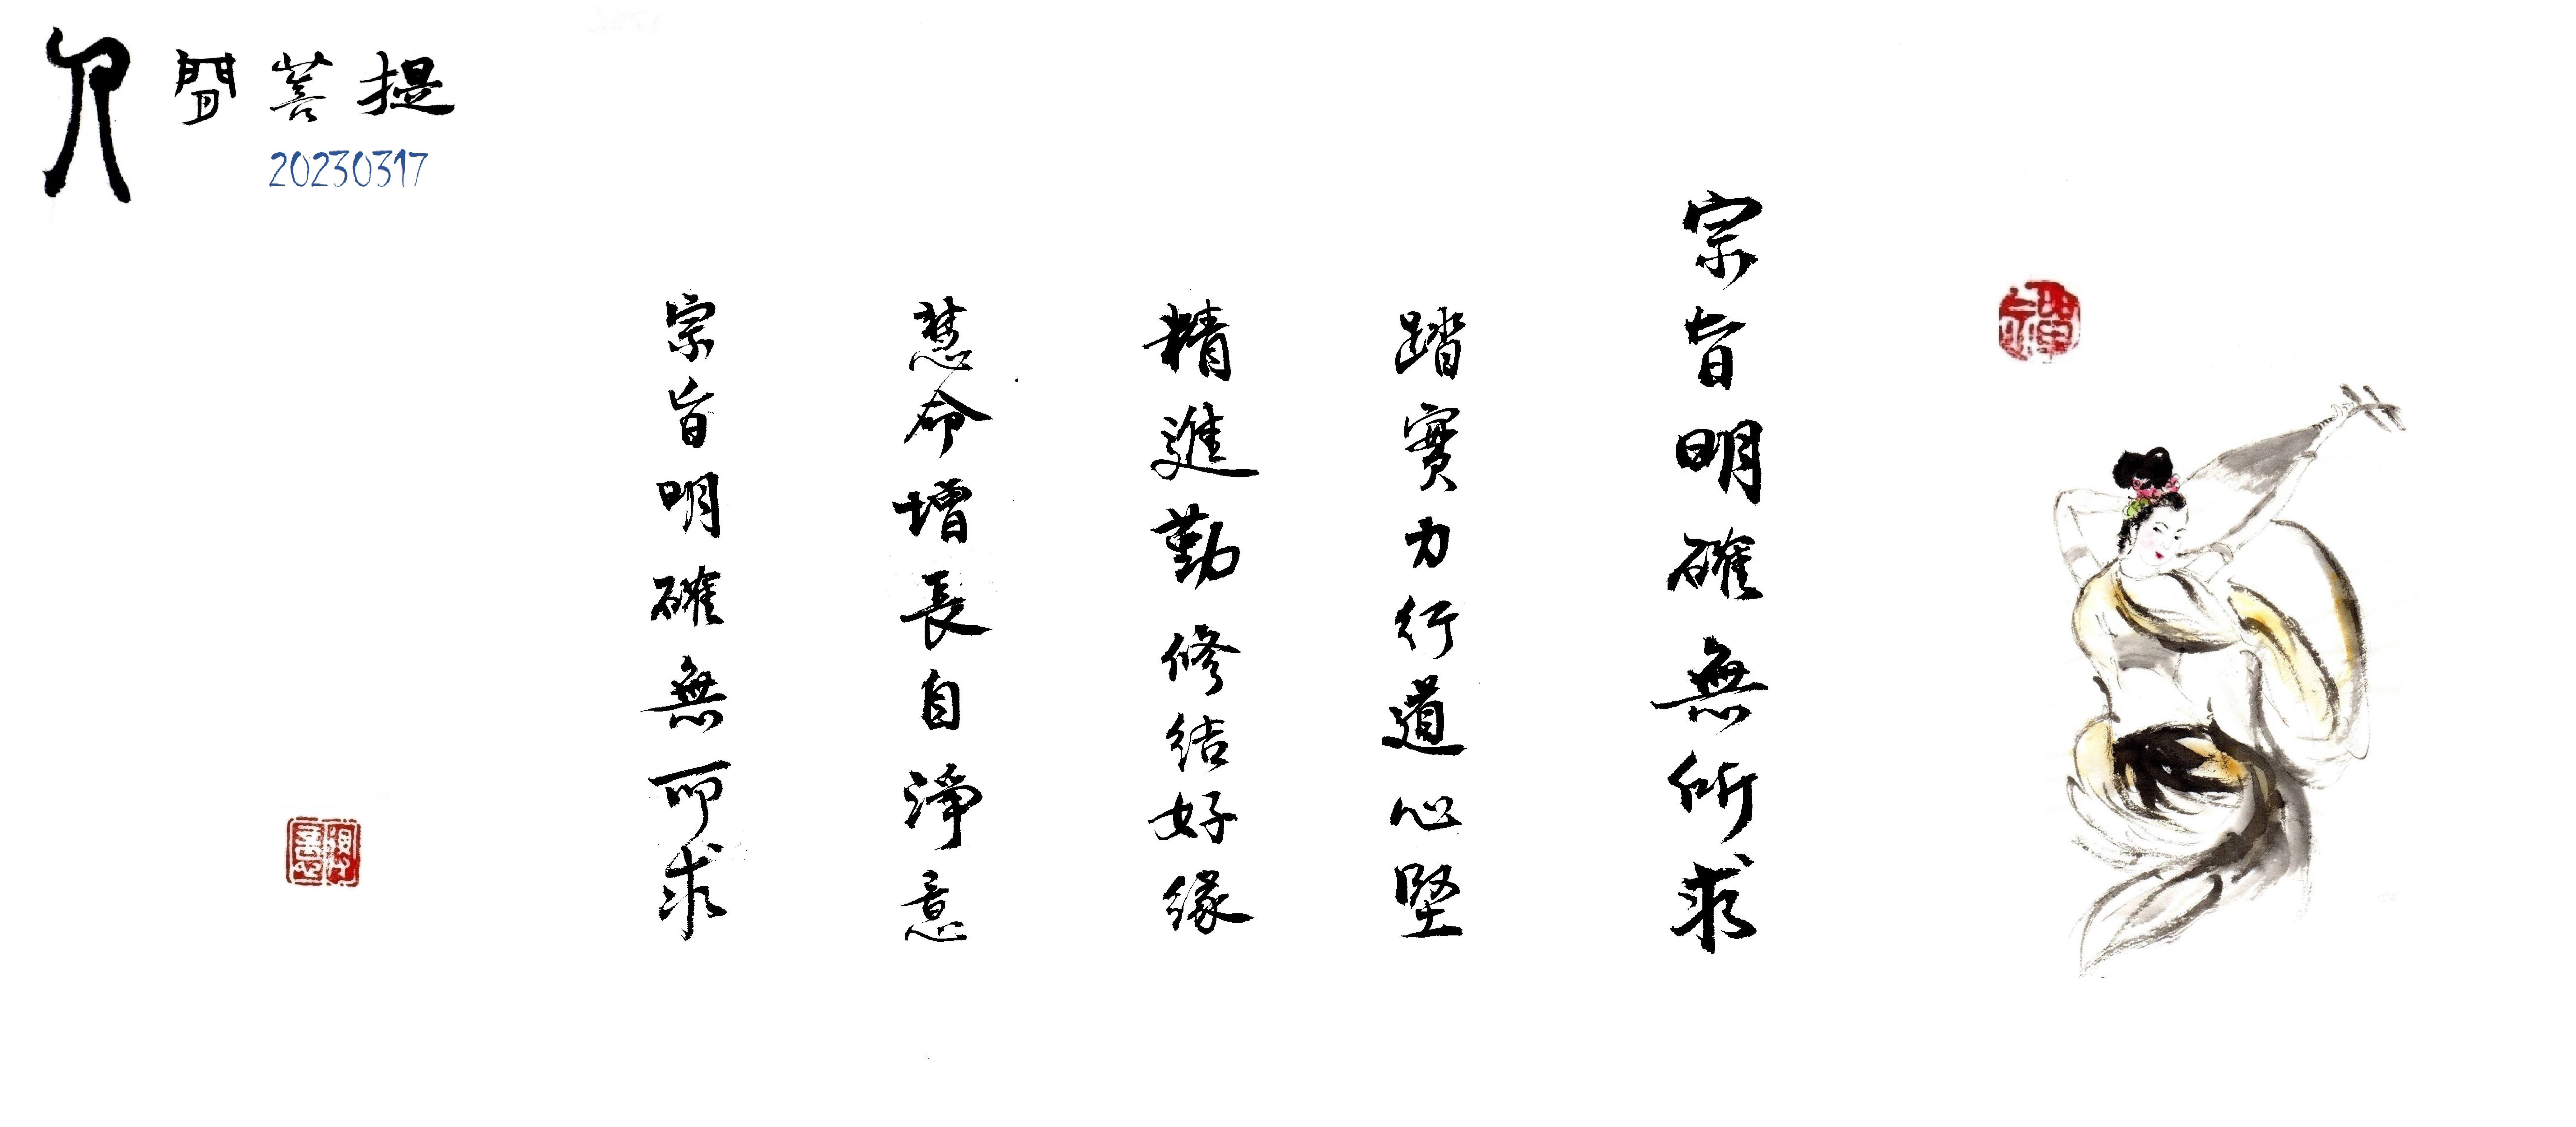 人間菩提
20230317
禪
宗旨明確無所求
踏實力行道心堅
精進勤修結好緣
慧命增長自淨意
宗旨明確無所求